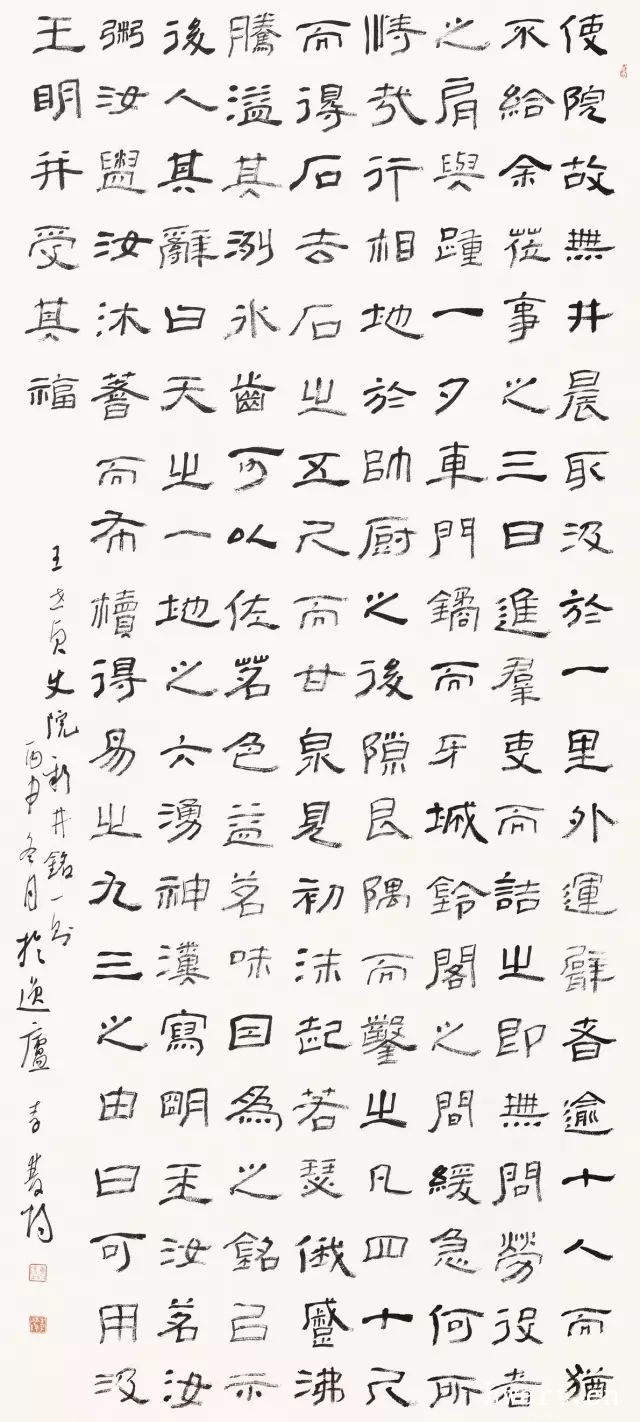 使院故無井晨取汲於一里外運者逾十人而猶
不給余蒞事之三日進羣吏而詰之即無問勞役者
之肩與踵一夕車門鐍而牙城鈴閣之間緩急何所
恃哉行相地於帥厨之後隙艮隅而鑿之凡四十尺
而得石去石之五尺而甘泉見初沫起若瑟俄沸
騰溢其洌冰齒可以佐茗色益茗味因為之銘以示
後人其辭曰天之一地之六湧神瀵寫明玉汝茗汝
粥汝盥汝沐薈而希櫝得易之九三之由曰可用汲
王明并受其福
王世貞史院新井銘一則
丙申冬月於逸廬李雙陽